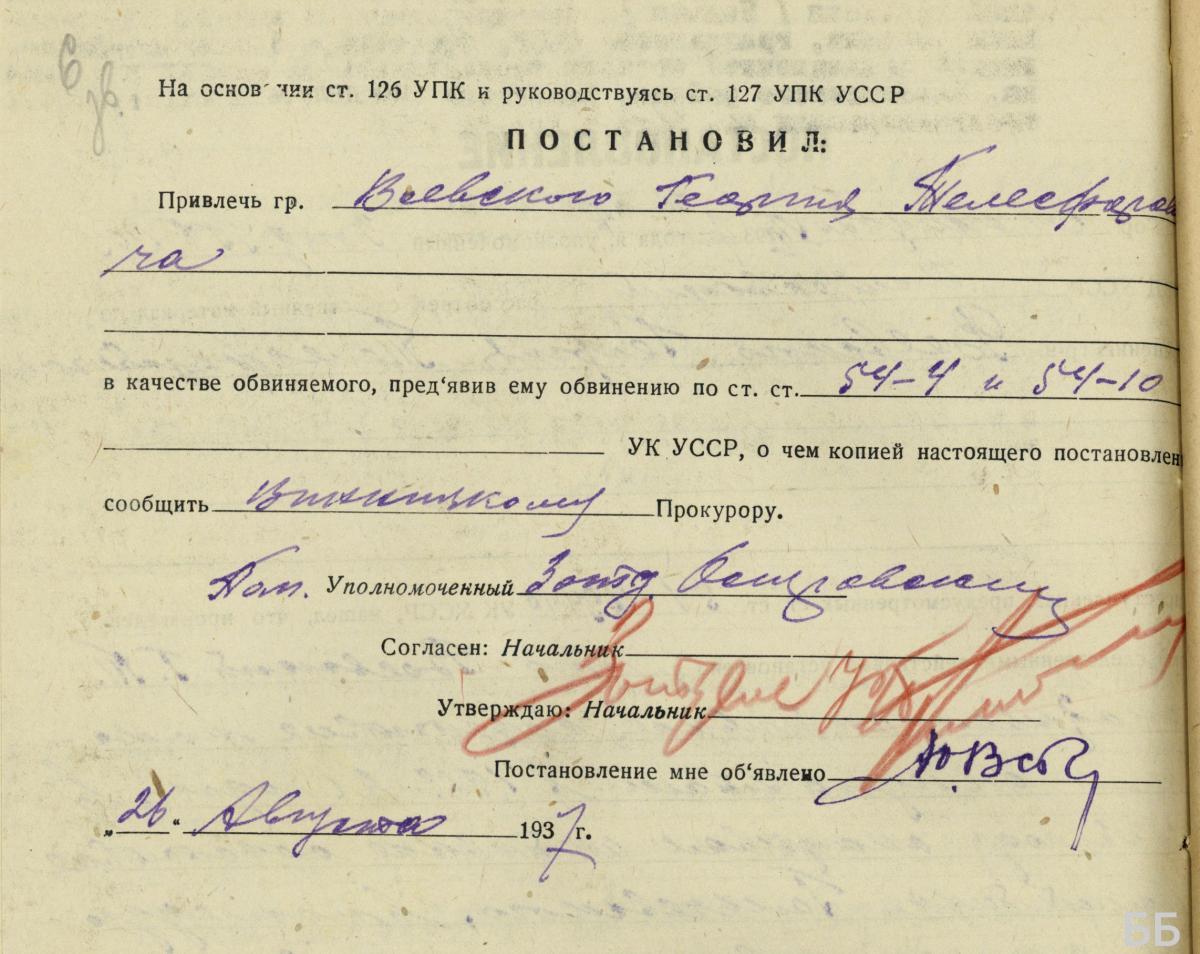 На основании ст. 126 УПК и руководствуясь ст. 127 УПК УССР
ПОСТАНОВИЛ:
Привлечь гр. Воевского Георгия Телесфоров
ча
в качестве обвиняемого, пред‘явив ему обвинению по ст. ст. 54-4 и 54-10
УК УССР, о чем копией настоящего постановлен
сообщить Винницкому Прокурору.
Пом. Уполномоченный 3 отд. Островский
Согласен: Начальник
Утверждаю: Начальник
Постановление мне об‘явлено
„26“ Августа 1937 г.
ББ